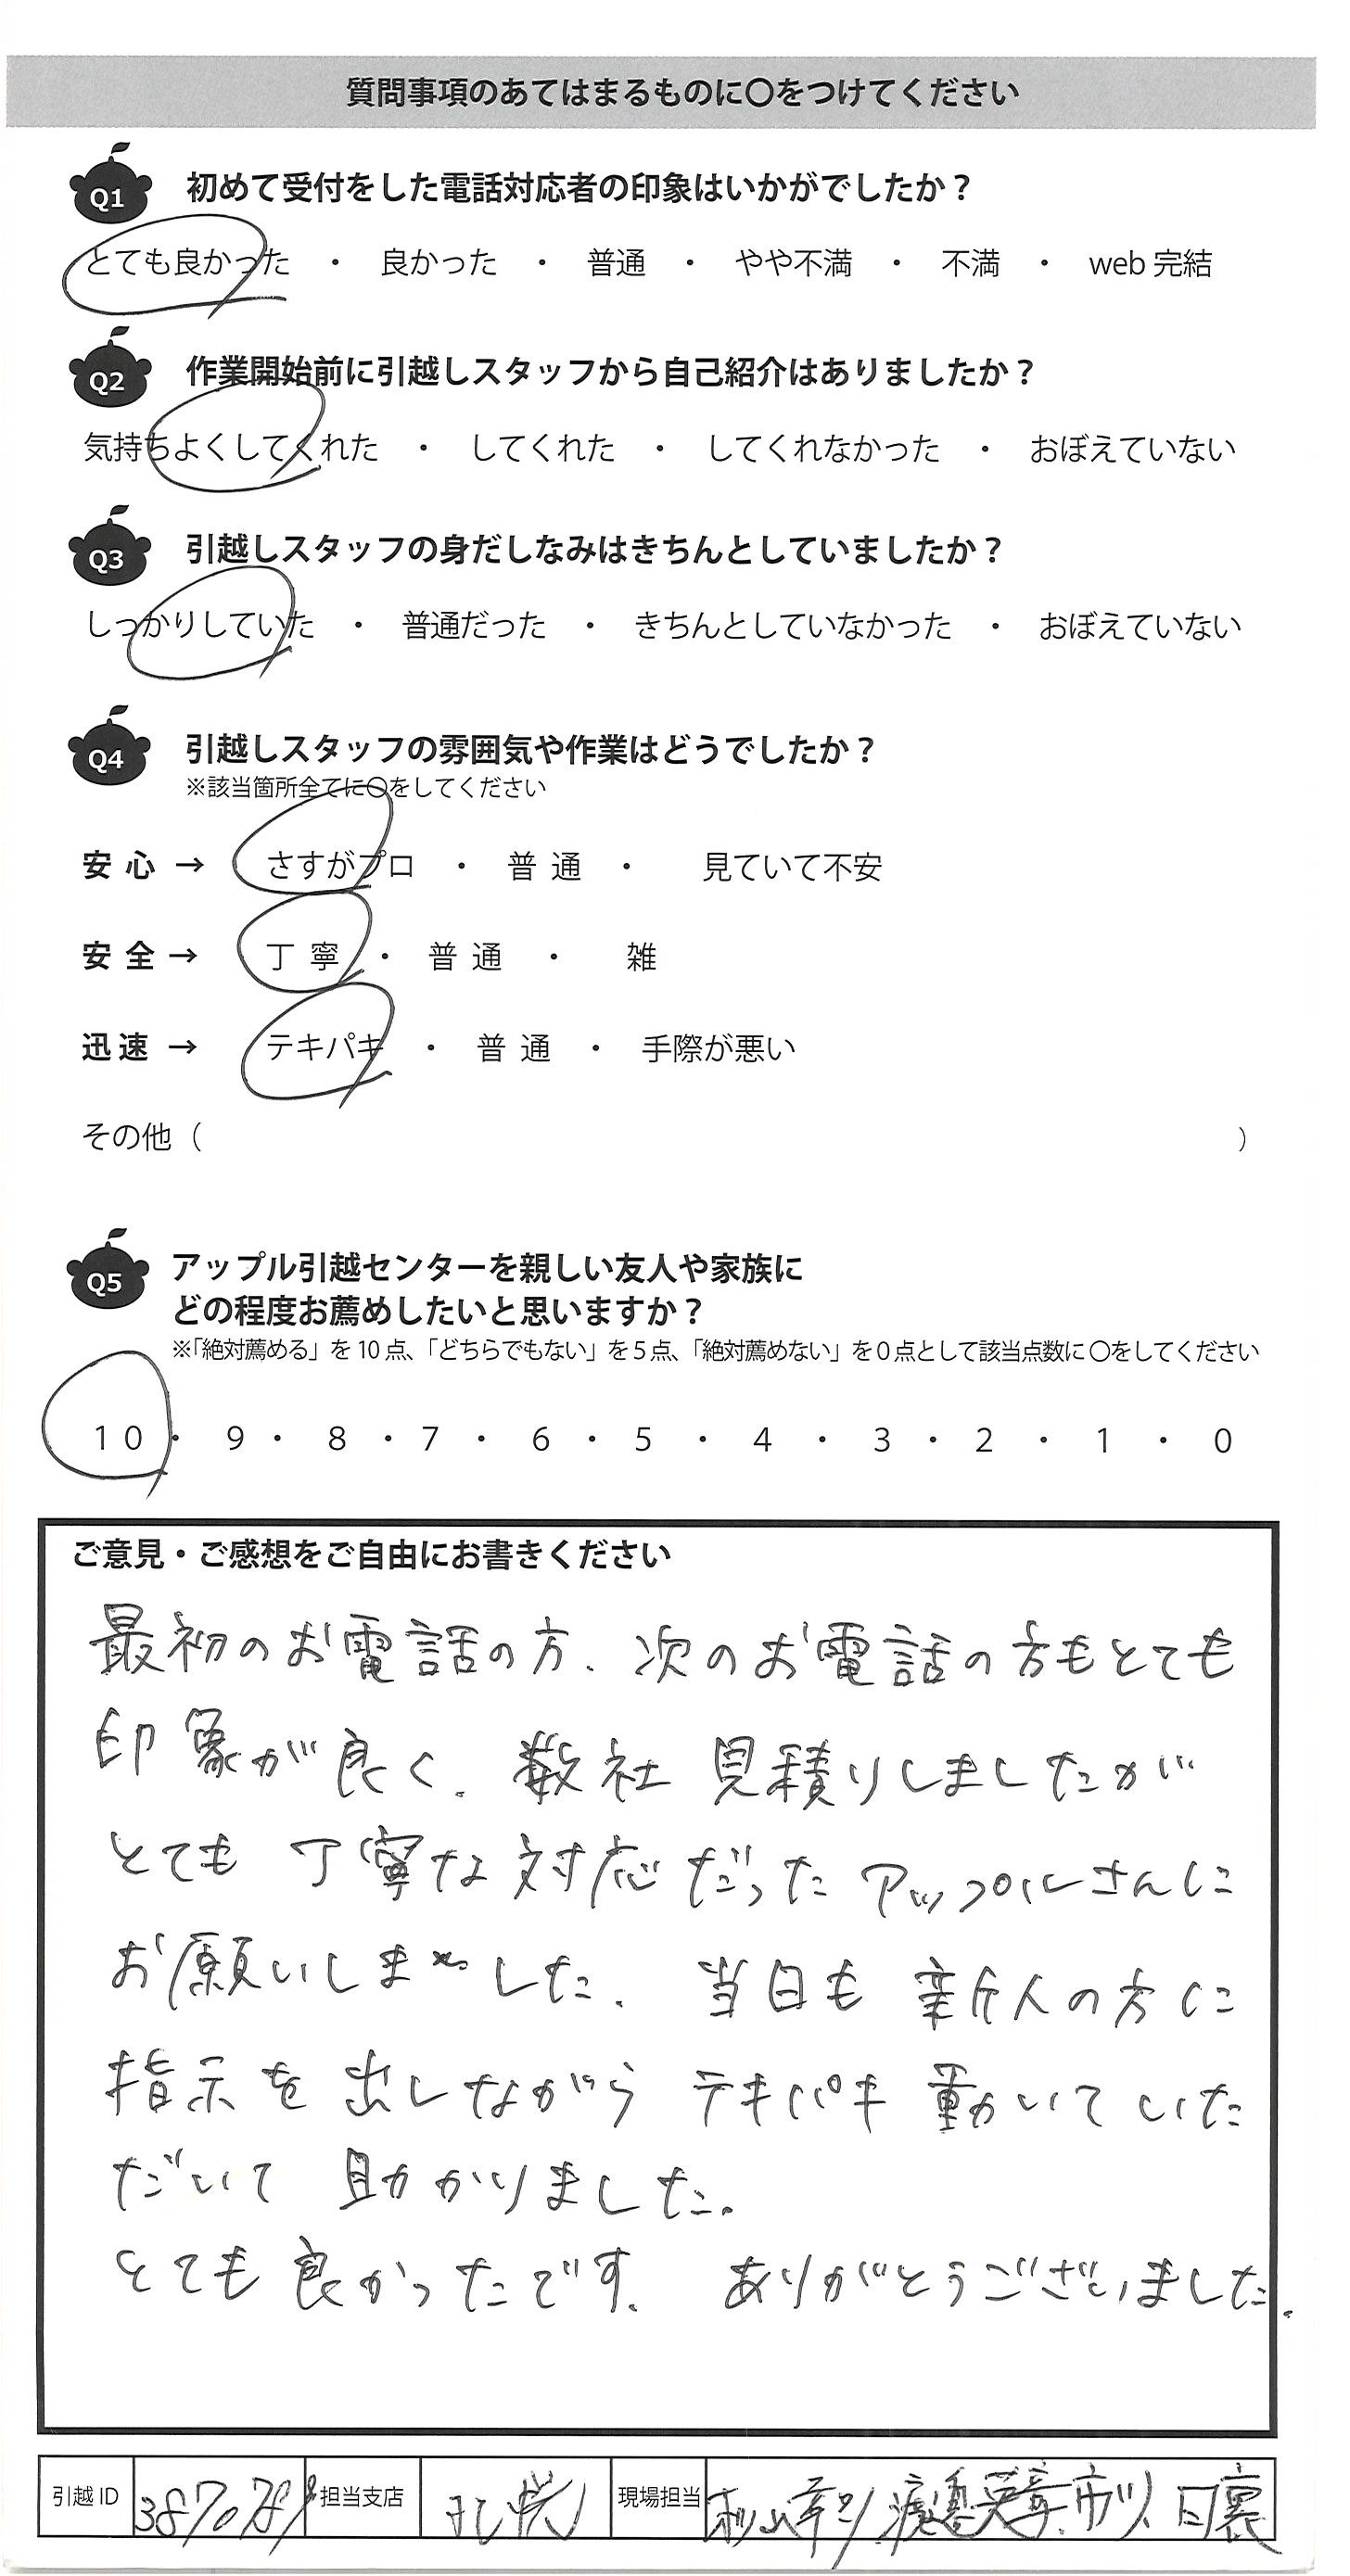 質問事項のあてはまるものに〇をつけてください
Q1 初めて受付をした電話対応者の印象はいかがでしたか？
とても良かった ・ 良かった ・ 普通 ・ やや不満 ・ 不満 ・ web 完結
Q2 作業開始前に引越しスタッフから自己紹介はありましたか？
気持ちよくしてくれた ・ してくれた ・ してくれなかった ・ おぼえていない
Q3 引越しスタッフの身だしなみはきちんとしていましたか？
しっかりしていた ・ 普通だった ・ きちんとしていなかった ・ おぼえていない
Q4 引越しスタッフの雰囲気や作業はどうでしたか？
※該当箇所全てに〇をしてください
安心 → さすがプロ ・ 普通 ・ 見ていて不安
安全 → 丁寧 ・ 普通 ・ 雑
迅速 → テキパキ ・ 普通 ・ 手際が悪い
その他（ ）
Q5 アップル引越センターを親しい友人や家族に
どの程度お薦めしたいと思いますか？
※「絶対薦める」を10点、「どちらでもない」を5点、「絶対薦めない」を0点として該当点数に〇をしてください
10 ・ 9 ・ 8 ・ 7 ・ 6 ・ 5 ・ 4 ・ 3 ・ 2 ・ 1 ・ 0
ご意見・ご感想をご自由にお書きください
最初のお電話の方、次のお電話の方もとても
印象が良く、数社 見積りしましたが
とても 丁寧な対応だった アップルさんに
お願いしました。 当日も 新人の方に
指示を 出しながら テキパキ 動いていた
だいて 助かりました。
とても良かったです。 ありがとうございました。
引越ID 担当支店 札幌 現場担当